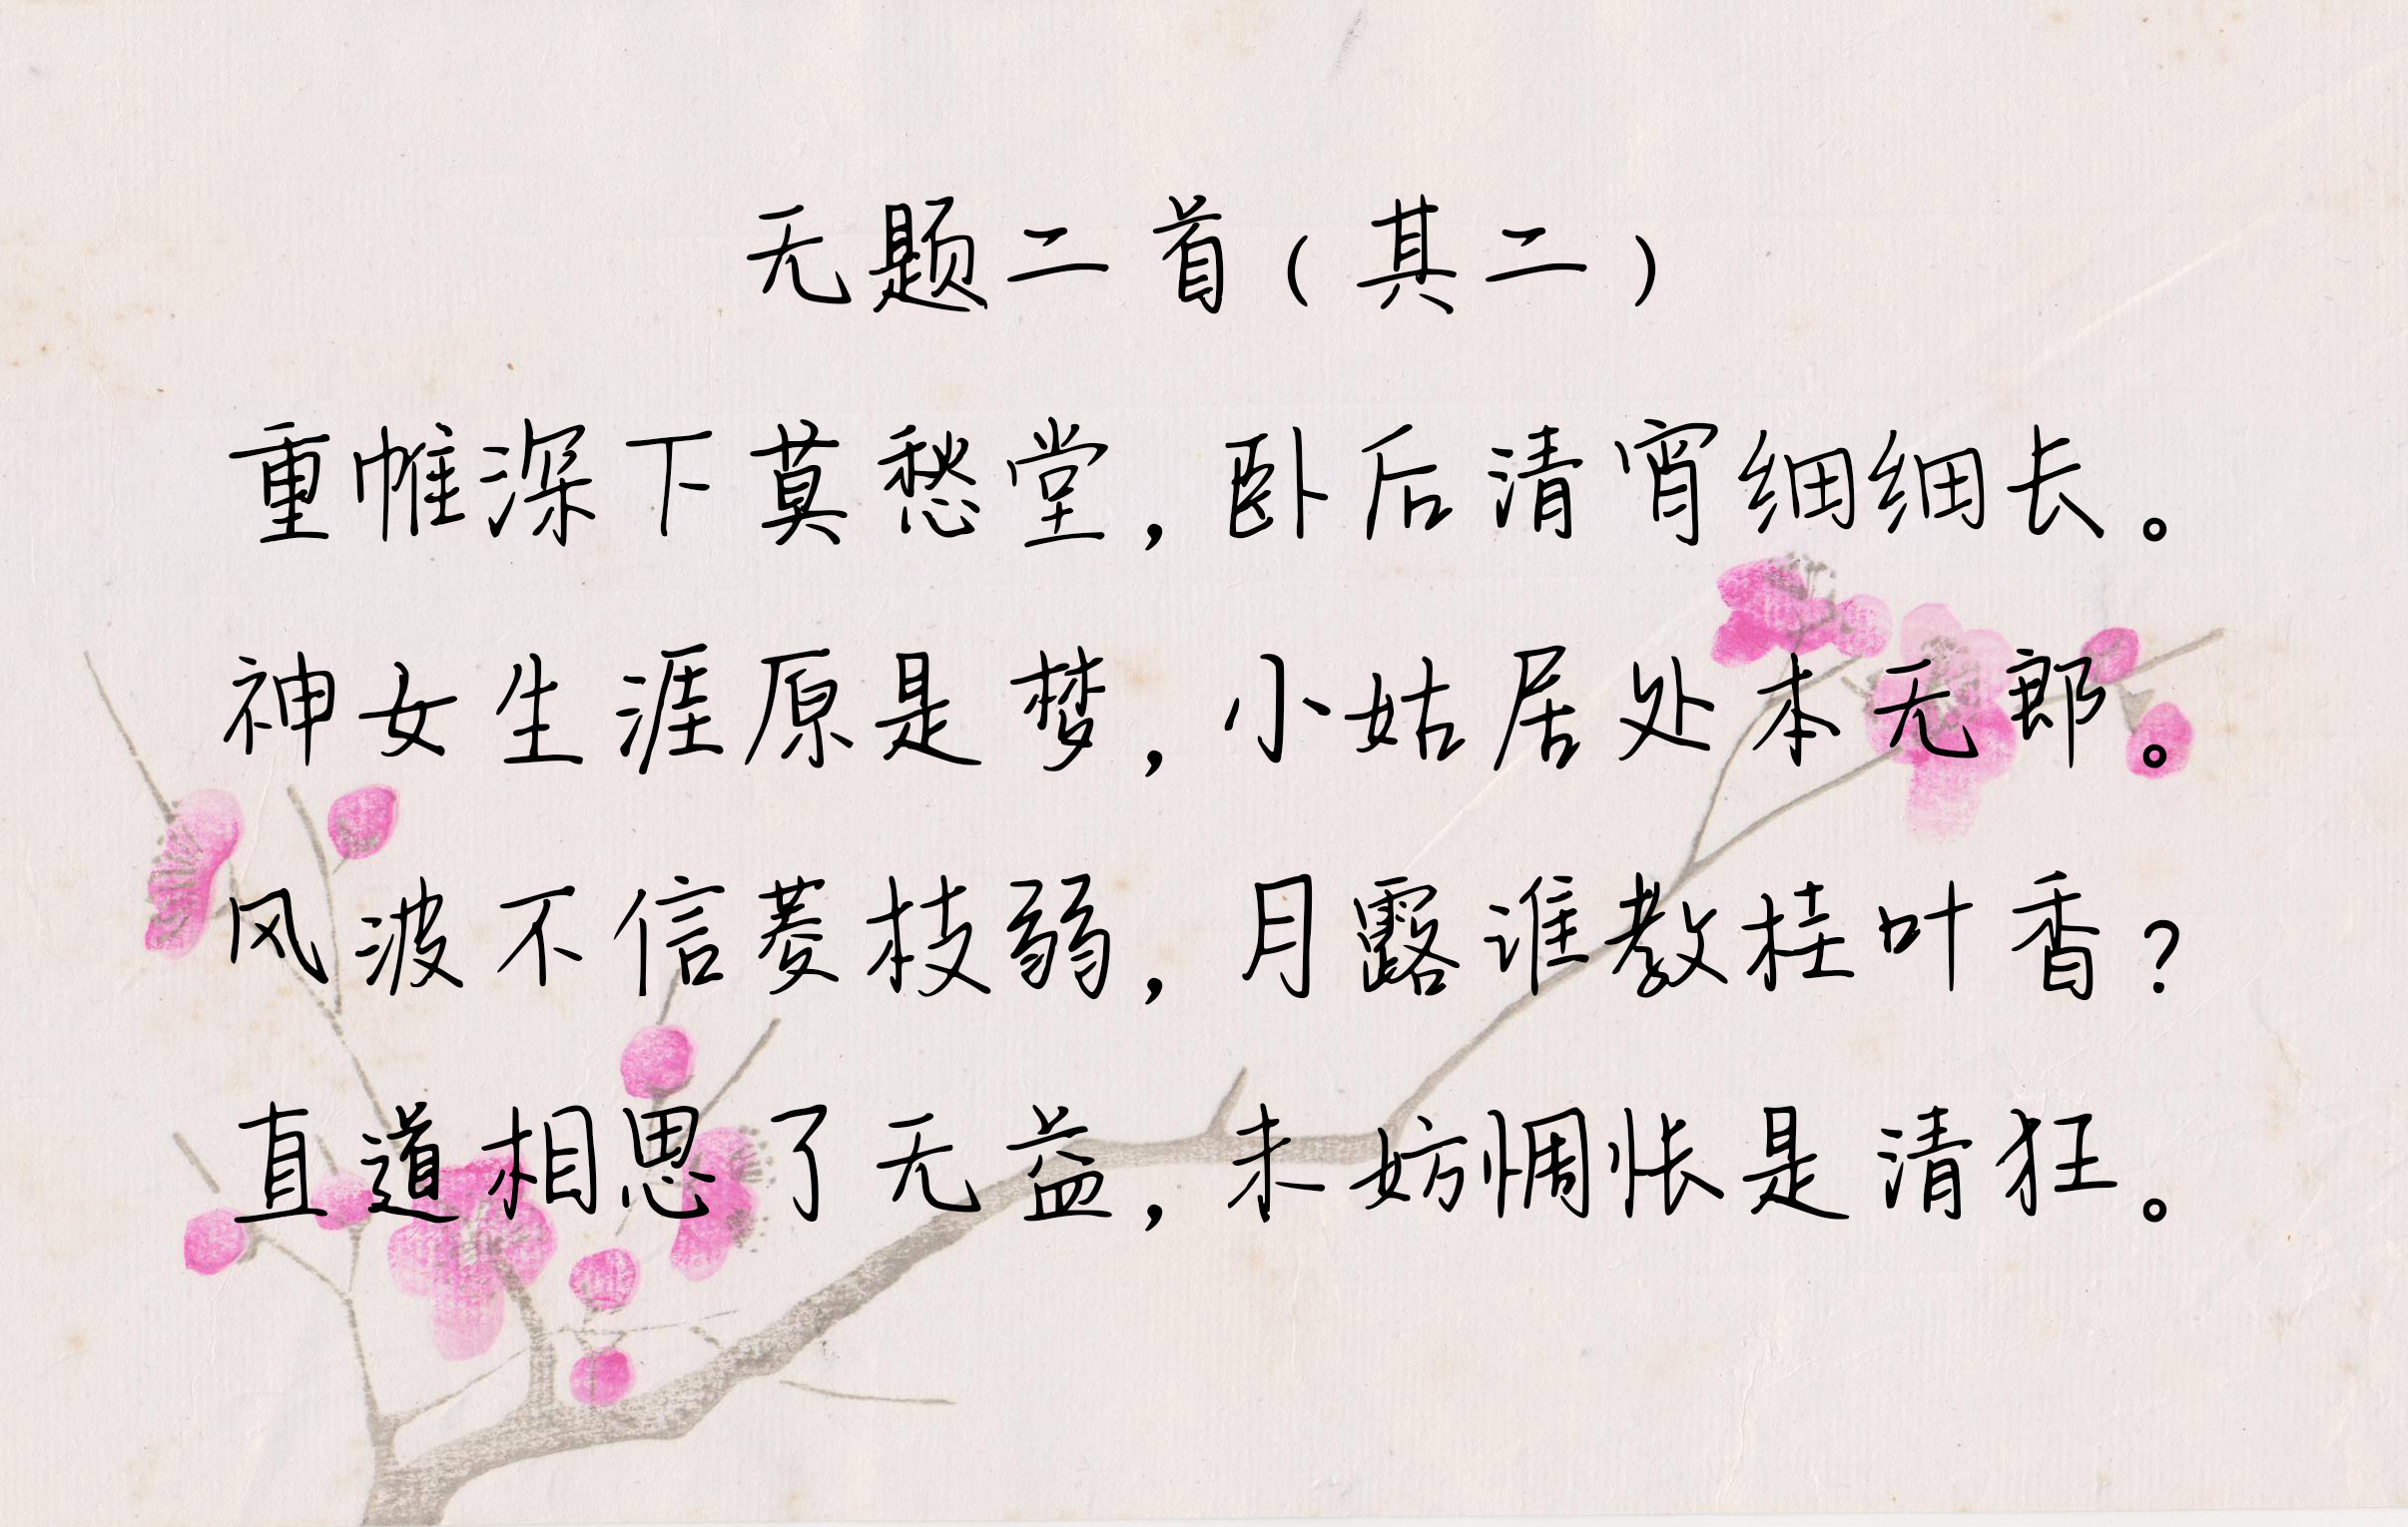 无题二首（其二）
重帷深下莫愁堂，卧后清宵细细长。
神女生涯原是梦，小姑居处本无郎。
风波不信菱枝弱，月露谁教桂叶香？
直道相思了无益，未妨惆怅是清狂。